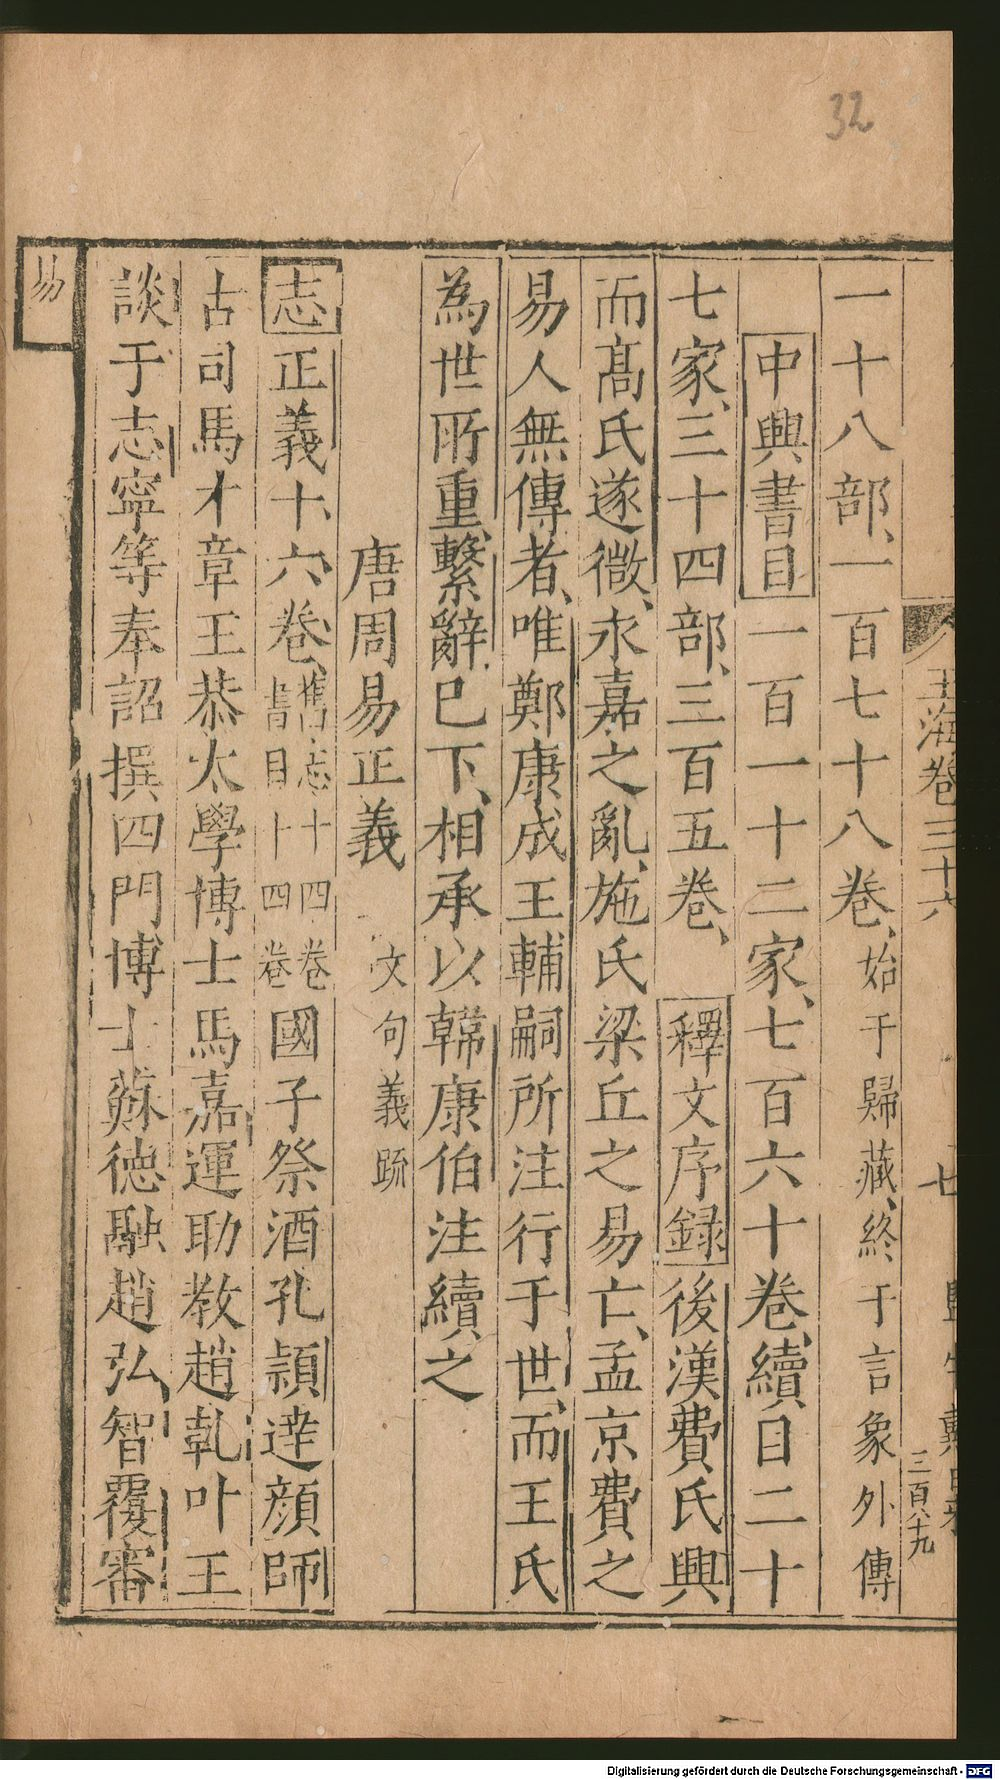 32
玉海卷三十六
七
三百八十九
一十八部、一百七十八卷、始于歸藏、終于言象外傳
中興書目一百一十二家、七百六十卷、續目二十
七家、三十四部、三百五卷、釋文序録後漢費氏興
而髙氏遂微、永嘉之亂、施氏梁丘之易亡、孟京費之
易人無傳者、唯鄭康成王輔嗣所注行于世、而王氏
為世所重、繫辭已下、相承以韓康伯注續之
唐周易正義 文句義䟽
志正義十六卷、舊志十四卷書目十四卷國子祭酒孔頴達顔師
古司馬才章王恭太學博士馬嘉運助教趙乹叶王
談于志寧等奉詔撰四門博士蘇德融趙弘智覆審
易
Digitalisierung gefördert durch die Deutsche Forschungsgemeinschaft - DFG